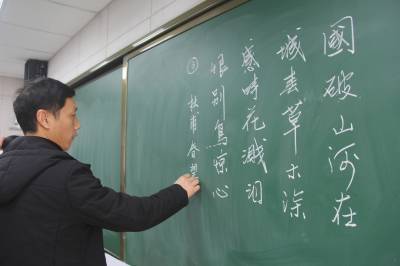 國破山河在
城春草木深
感時花濺泪
恨别鳥惊心
③杜甫春望